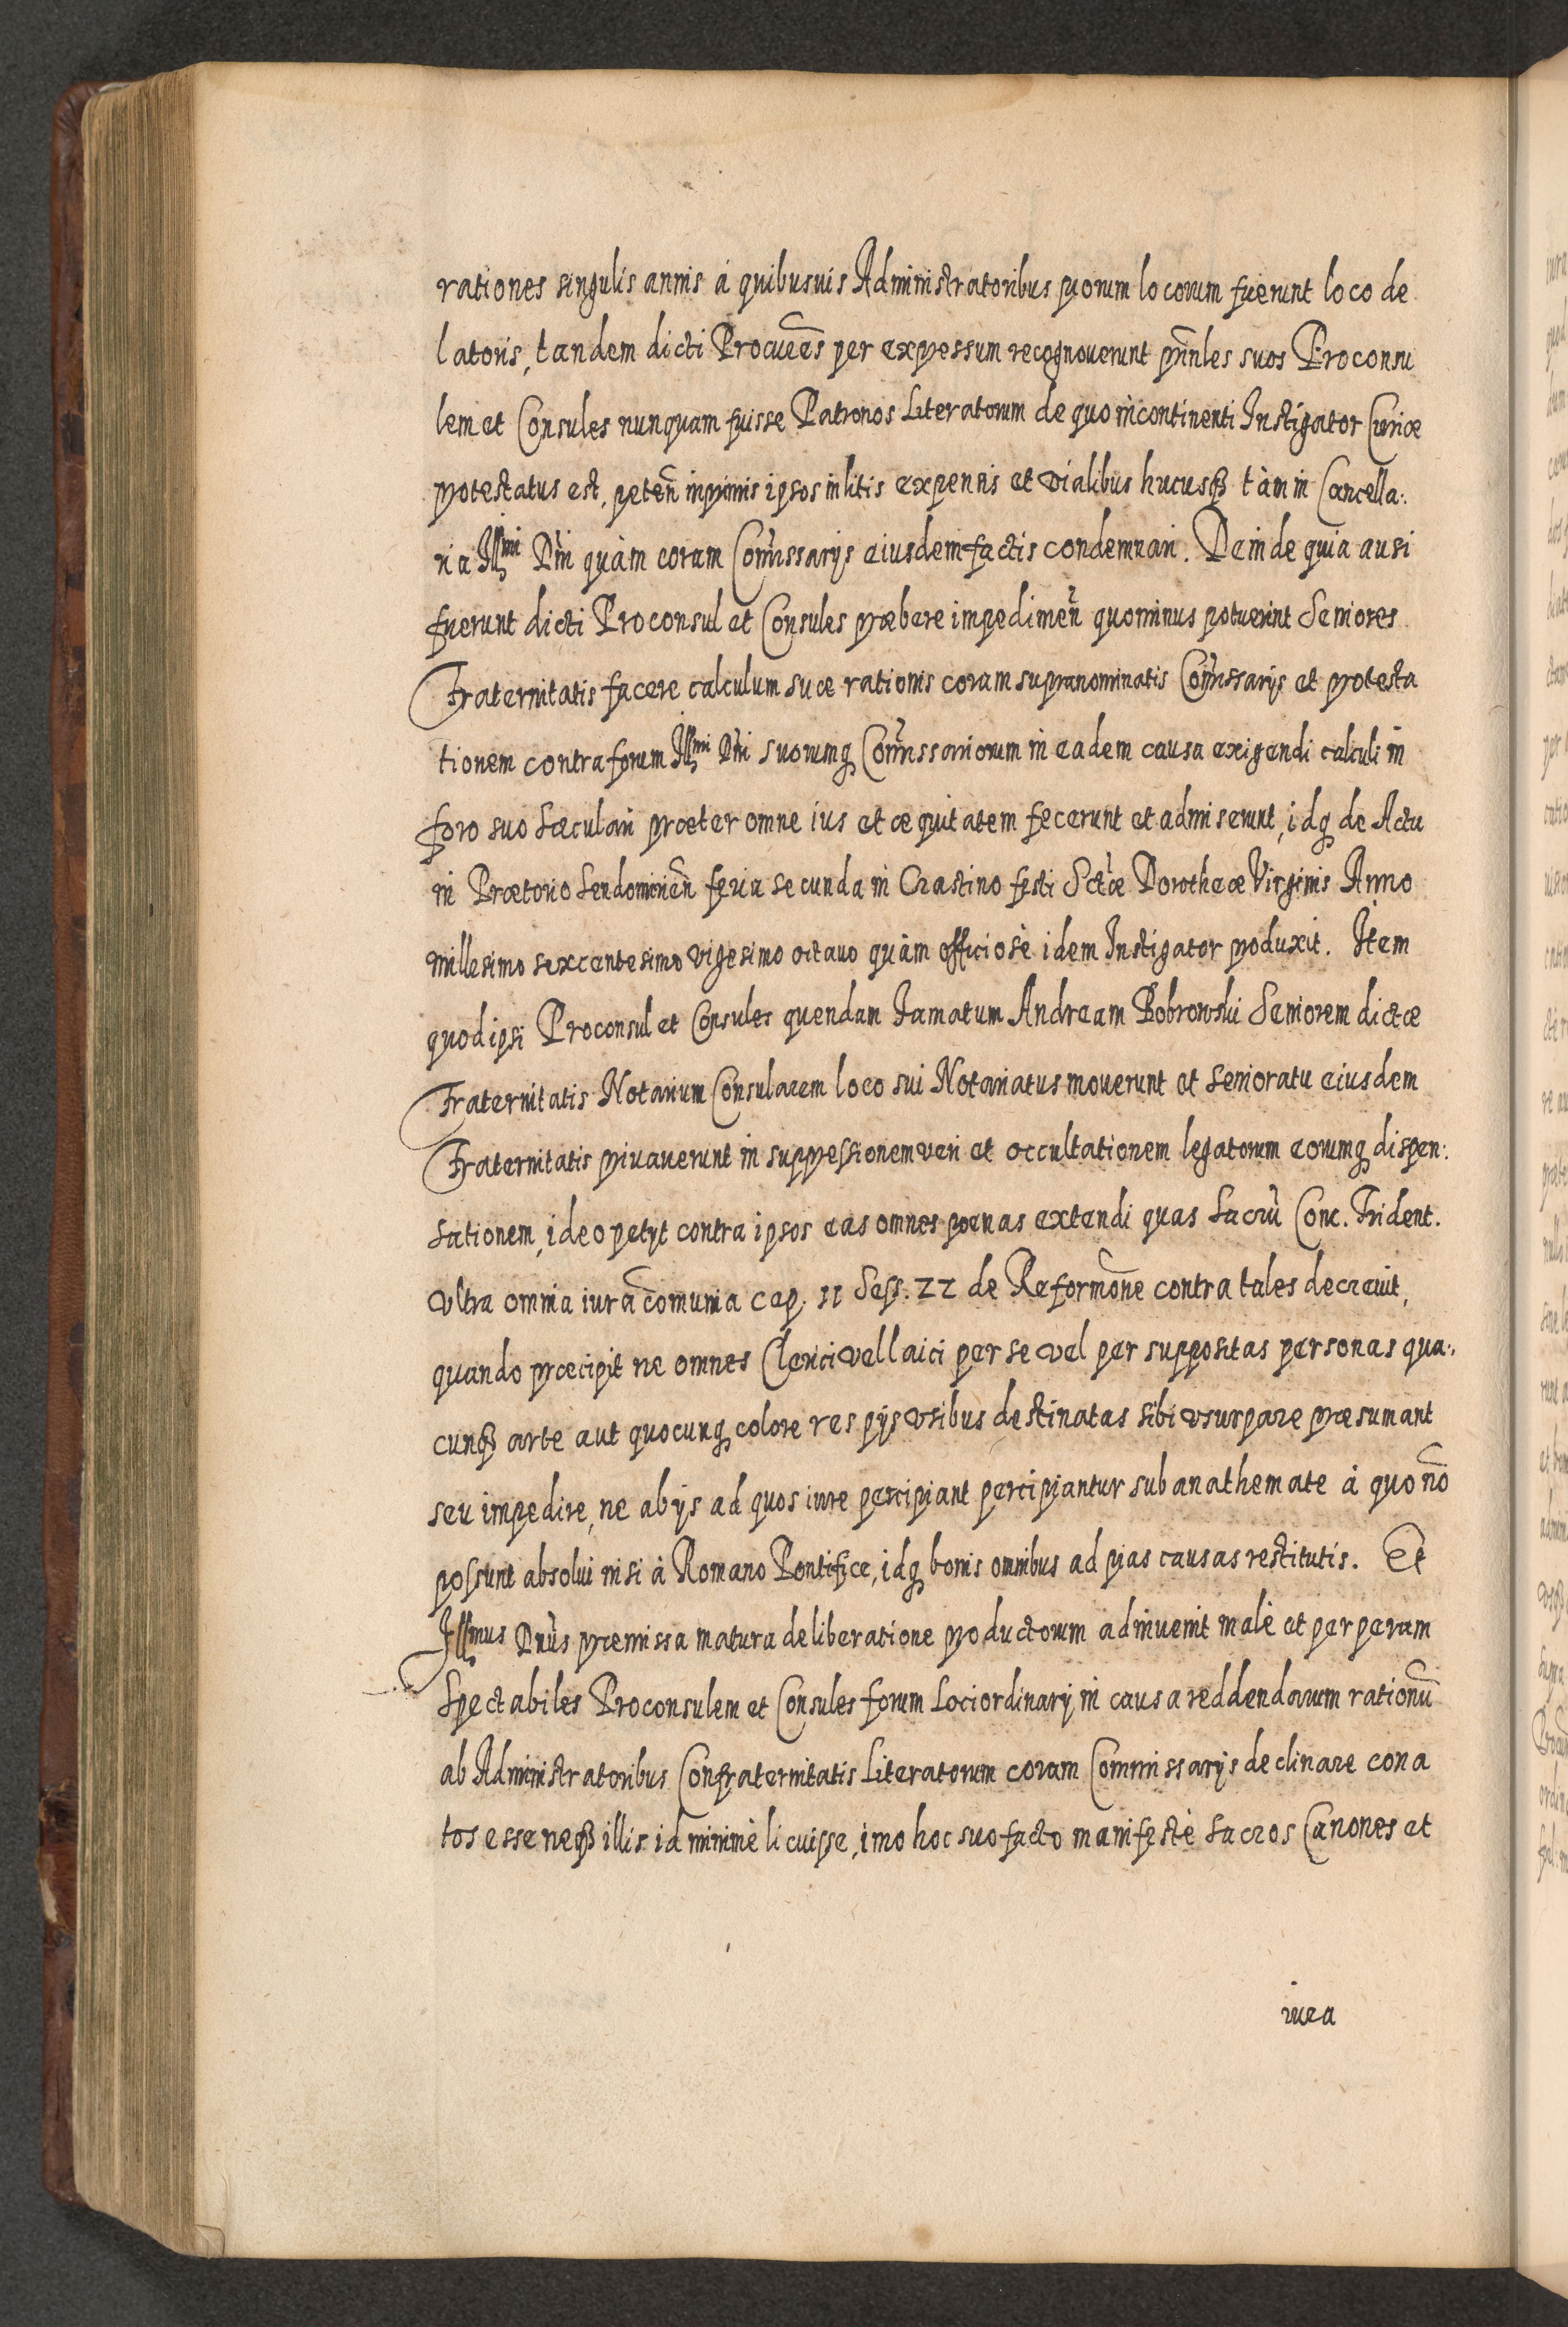 rationes singulis annis á quibusuis Administratoribus piorum locorum fuerunt loco de
latoris, tandem dicti Procures per expressum recognouerunt prin̄les suos Proconsu
lem et Consules nunquam fuisse Patronos Literatorum de quo incontinenti Instigator Curiæ
protestatus est, peteñ inprimis ipsos in litis expensis et vialibus hucusq; tàm in Cancella:
ria Illmi Dñi quàm coram Com̃issarijs eiusdem factis condemnari. Deinde quia ausi
fuerunt dicti Proconsul et Consules præbere impedimeñ quominus potuerint Seniores
Fraternitatis facere calculum suæ rationis coram supranominatis Com̃issarijs et protesta
tionem contra forum Illmi Dñi suorumq; Com̃issariorum in eadem causa exigendi calculi in
foro suo sæculari præter omne ius et æquitatem fecerunt et admiserunt, idq; de Actu
in Prætorio Sendomirieñ feria secunda in Crastino festi Sctæ Dorotheæ Virginis Anno
millesimo sexcentesimo vigesimo octauo quàm officiosè idem Instigator produxit. Item
quod ipsi Proconsul et Consules quendam Famatum Andream Bobrowski Seniorem dictæ
Fraternitatis Notarium Consularem loco sui Notariatus mouerunt et senioratu eiusdem
Fraternitatis priuauerunt in suppressionem veri et occultationem legatorum eorumq; dispen:
sationem, ideo petyt contra ipsos eas omnes poenas extendi quas Sacrũ Conc. Trident.
vltra omnia iura com̃unia cap. 11 Sess. 22 de Reformõne contra tales decreuit,
quando præcipit ne omnes Clerici vel laici per se vel per suppositas personas qua:
cunq; arte aut quocunq; colore res pijs vsibus destinatas sibi vsurpare præsumant
seu impedire, ne ab ijs ad quos iure percipiant percipiantur sub anathemate à quo nõ
possunt absolui nisi à Romano Pontifice, idq; bonis omnibus ad pias causas restitutis. Et
Illmus Dñus præmissa matura deliberatione productorum adinuenit malè et perperam
Spectabiles Proconsulem et Consules forum Loci ordinarij in causa reddendarum rationũ
ab Administratoribus Confraternitatis Literatorum coram Commissarijs declinare cona
tos esse neq; illis id minimè licuisse, imo hoc suo facto manifestè Sacros Canones et
iura